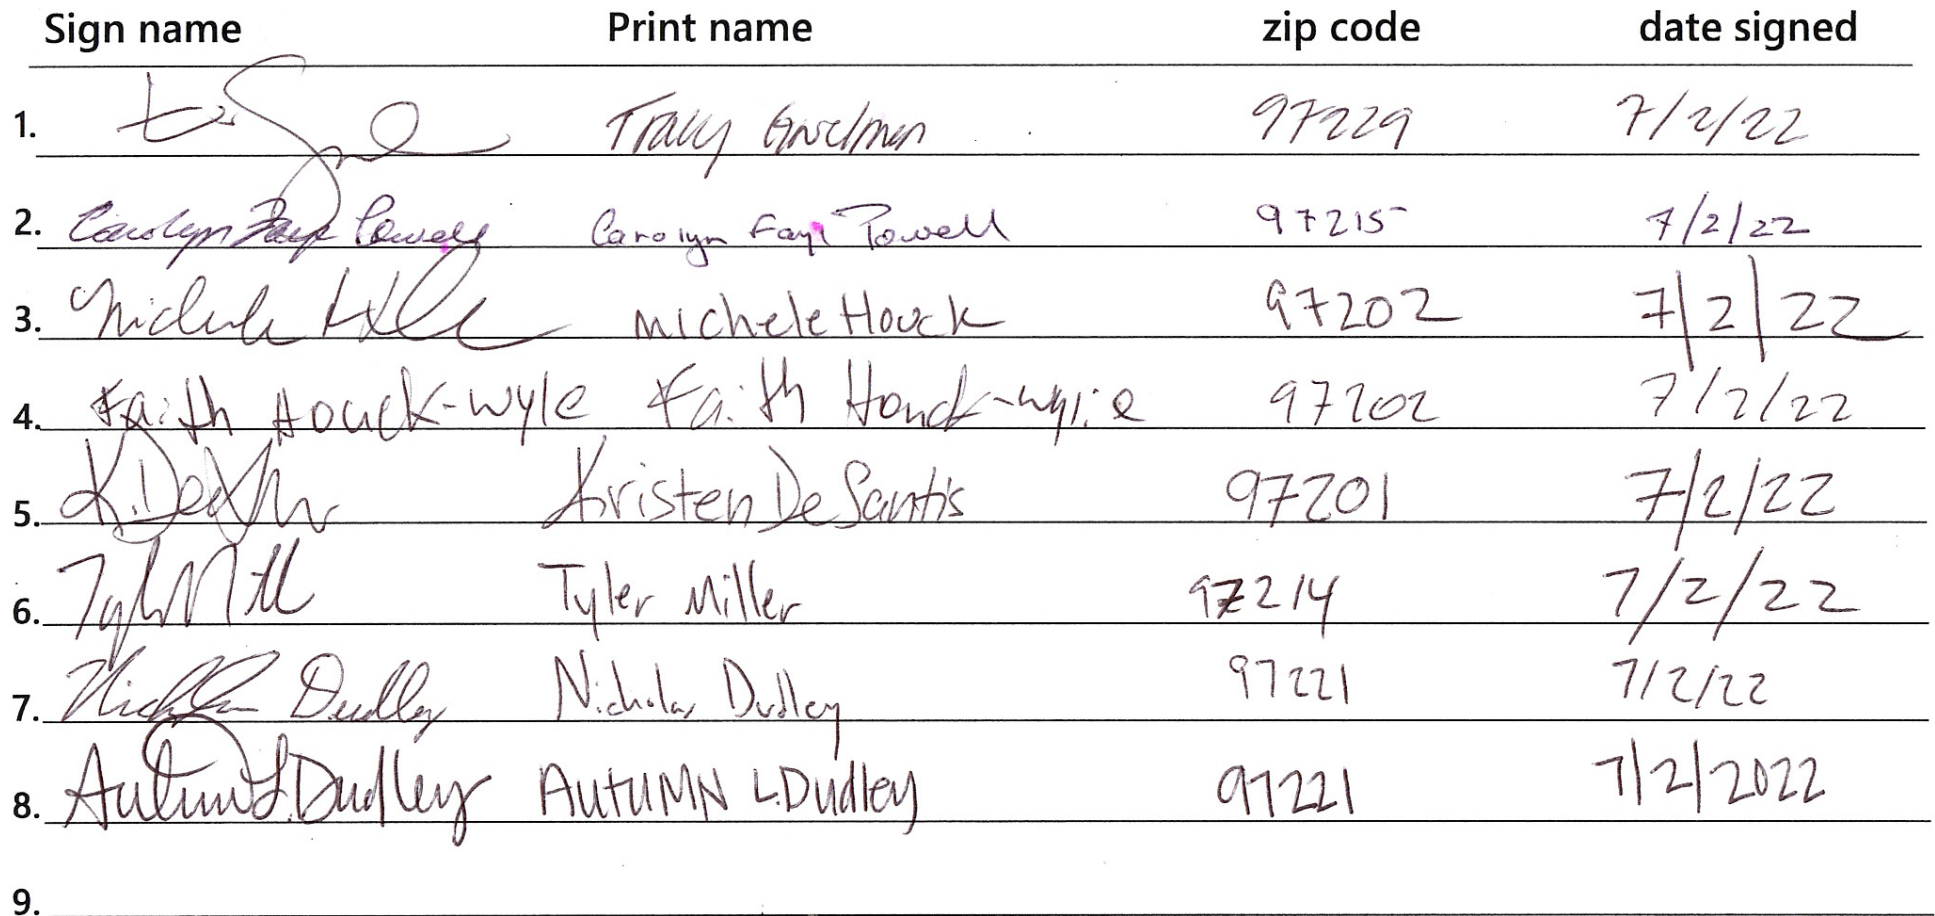 Sign name Print name zip code date signed
1. Tracy 97229 7/2/22
2. Carolyn Faye Powell Carolyn Faye Powell 97215 7/2/22
3. Michele michele Houck 97202 7/2/22
4. Faith Houck-wyle Faith Houck-wylie 97202 7/2/22
5. Kristen DeSantis 97201 7/2/22
6. Tyler Miller 97214 7/2/22
7. Nicholas Dudley Nicholas Dudley 97221 7/2/22
8. Autumn L. Dudley AUTUMN L. Dudley 97221 7/2/2022
9.